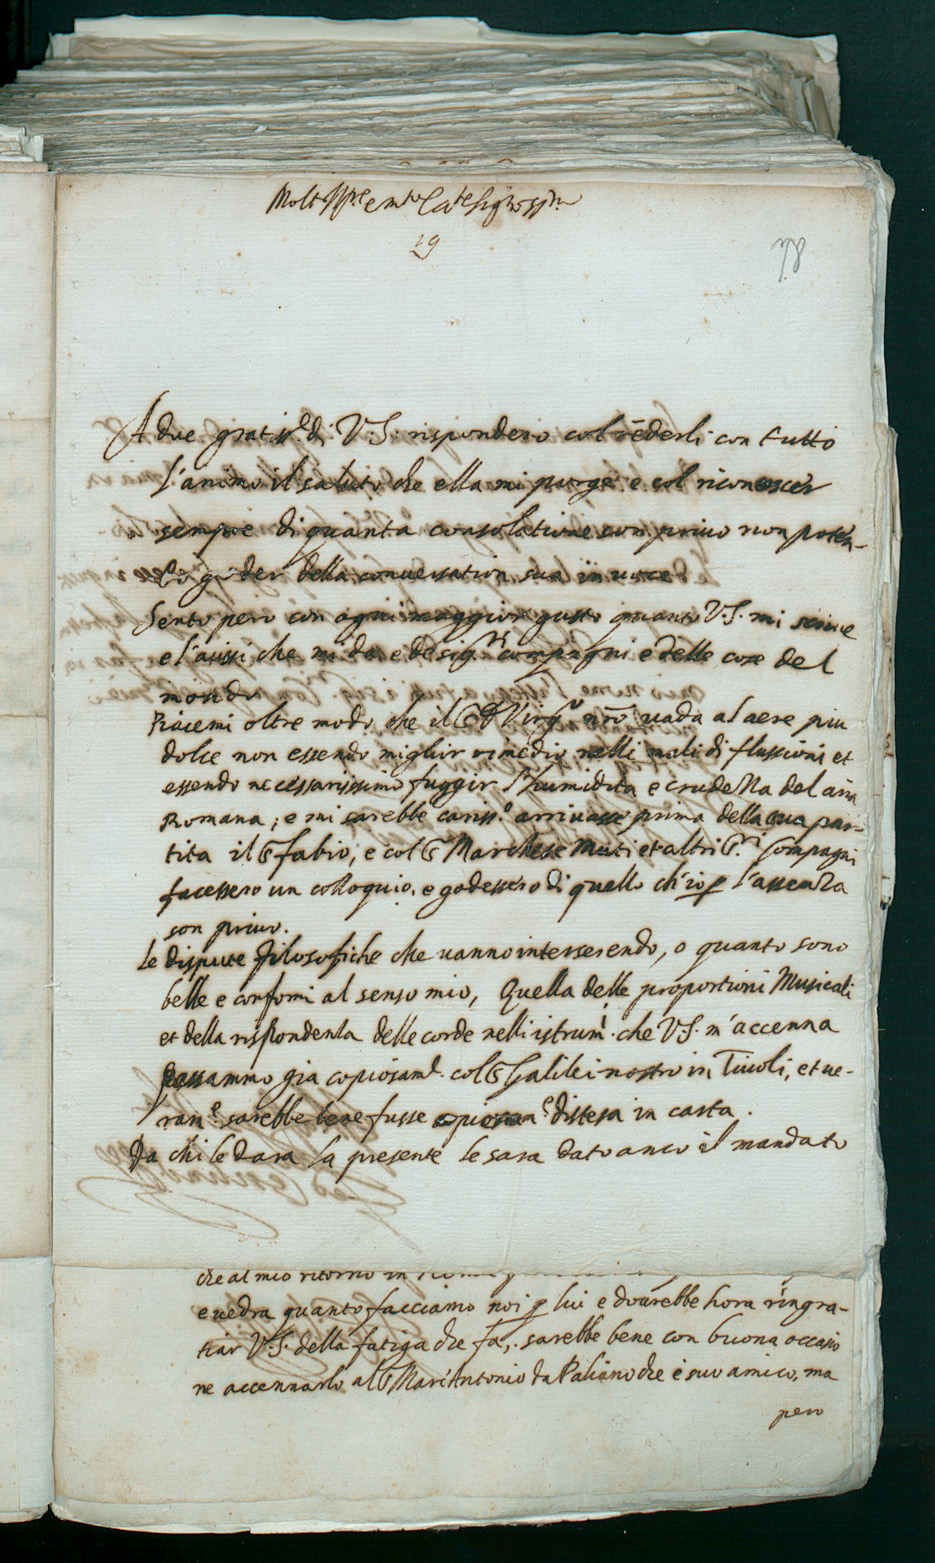 Molt Ill.re e m.to Ecc.te Sig.r oss.mo
29
78
A due gratiss.e di V.S. risponderò col rēderli con tutto
l'animo il saluto che ella mi porge e col riconoscer
sempre di quanta consolatione son privo non poten-
do goder della conversation sua in voce
Sento pero con ogni maggior gusto quanto V.S. mi scrive
e l'avisi che mi da e de sig.ri compagni e delle cose del
mondo
Piacemi oltre modo che il S.r Virg.o nr̃o vada ad aere piu
dolce non essendo miglior rimedio nelli mali di flussioni et
essendo necessarissimo fuggir l'humidita e crudezza del aria
Romana; e mi sarebbe cariss.o arrivasse prima della sua par-
tita il S.r fabio, e col S.r Marchese Muti et altri S.ri Compagni
facessero un colloquio, e godessero di quello ch'io p l'assenza
son privo.
Le dispute filosofiche che vanno interserendo, o quanto sono
belle e conformi al senso mio, Quella delle proportioni Musicali
et della rispondenza delle corde nelli istrum.i che V.S. m'accenna
passammo gia copiosam.e col S.r Galilei nostro in Tivoli, et ve-
ram.e sarebbe bene fusse copiosam.e distesa in carta.
Da chi le dara la presente le sara dato anco il mandato
che al mio ritorno in Roma
e vedra quanto facciamo noi p lui e dovrebbe hora ringra-
tiar V.S. della fatiga che fa, sarebbe bene con buona occasio
ne accennarlo al S.r Marc'Antonio da Paliano che è suo amico, ma
pero